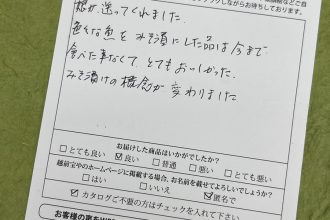 お待ちしております。
娘が送ってくれました。
色々な魚をみそ漬にした品は今まで
食べた事なくて、とてもおいしかった。
みそ漬けの概念が変わりました
お届けした商品はいかがでしたか？
□とても良い ☑良い □普通 □悪い □とても悪い
越前宝やのホームページに掲載する場合、お名前を載せてよろしいでしょうか？
□はい □いいえ ☑匿名で
□カタログご不要の方はチェックを入れて下さい。
お客様の声を